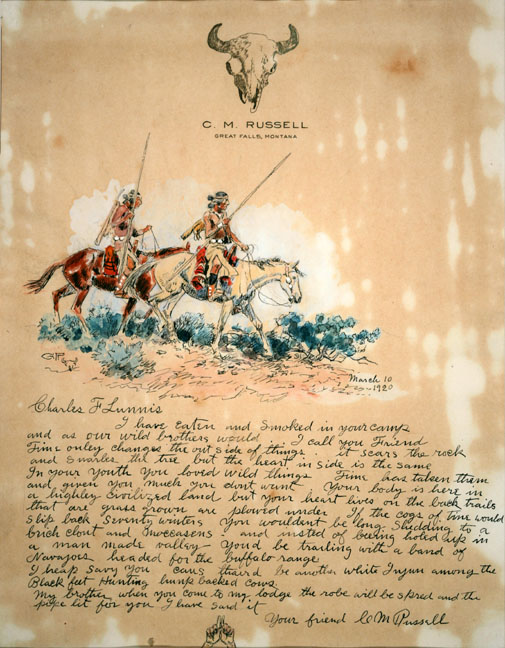 C. M. RUSSELL
GREAT FALLS, MONTANA
CMR
March 10
1920
Charles F Lunnis
I have Eaten and Smoked in your camp
and as our wild brothers would I call you Friend
Time onley changes the out side of things. it scars the rock
and snarles the tree but the heart in side is the same
In your youth You loved wild things Time has taken them
and given you much you dont want. Your body is here in
a highley civilized land but your heart lives on the back trails
that are grass grown are plowed under If the cogs of time would
slip back seventy winters you wouldent be long shedding to a
brich clout and moccasens and insted of being holed up in
a man made valley You'd be trailing with a band of
Navajoes headed for the buffalo range
I heap savy you caus thair'd be another white Injun among the
Black feet Hunting hump backed cows
My brother when you come to my lodge the robe will be spred and the
pipe lit for you I have said it
Your friend C M Russell